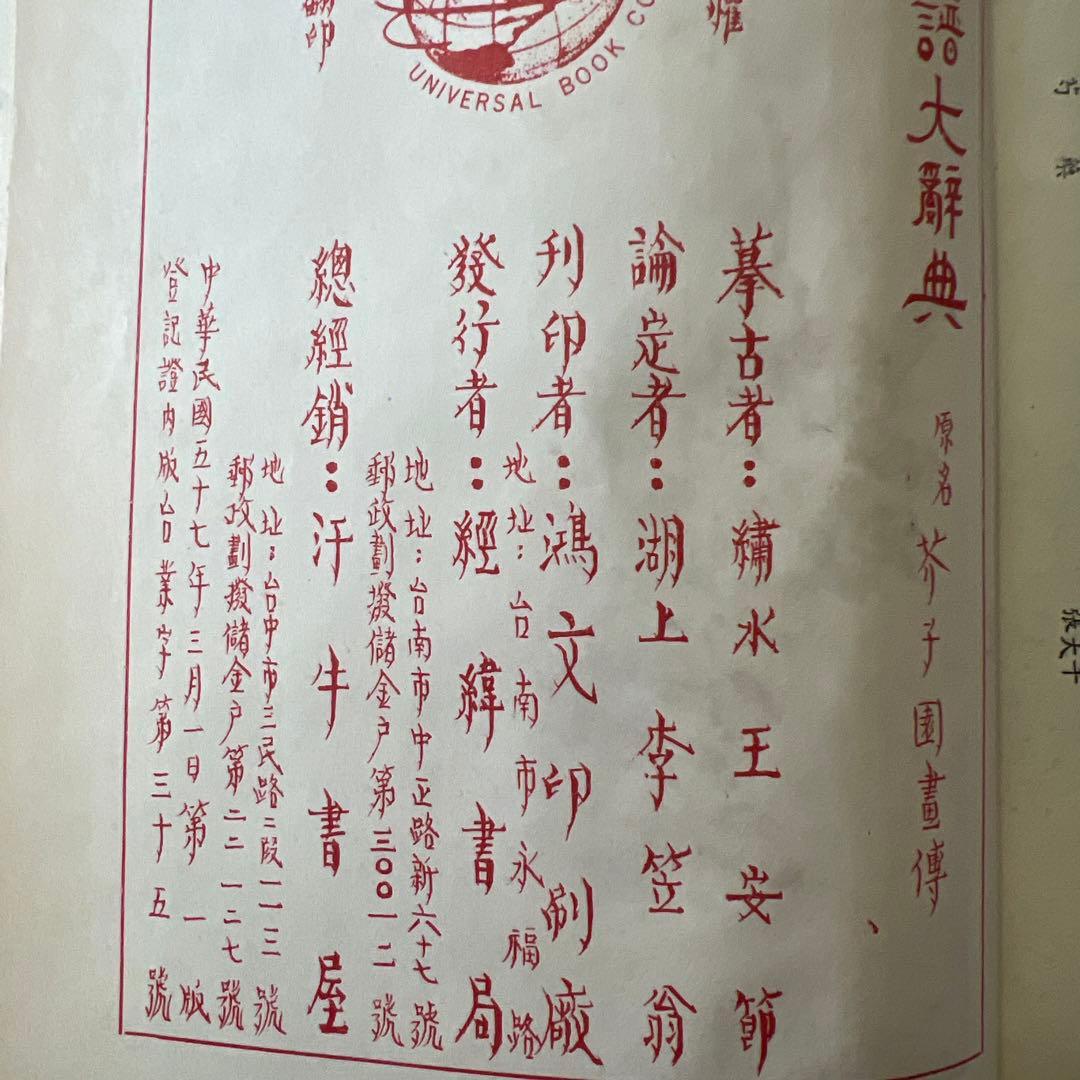 譜大辭典
原名 芥子園畫傳
摹古者：繡水王安節
論定者：湖上李笠翁
刊印者：鴻文印刷廠
地址：台南市永福路
發行者：經緯書局
地址：台南市中正路新六十七號
郵政劃撥儲金戶第三〇〇一二號
總經銷：汗牛書屋
地址：台中市三民路二段一一三號
郵政劃撥儲金戶第二二一二七號
中華民國五十七年三月一日第一版
登記證內版台業字第三十五號
權
翻印
UNIVERSAL BOOK CO
張大千